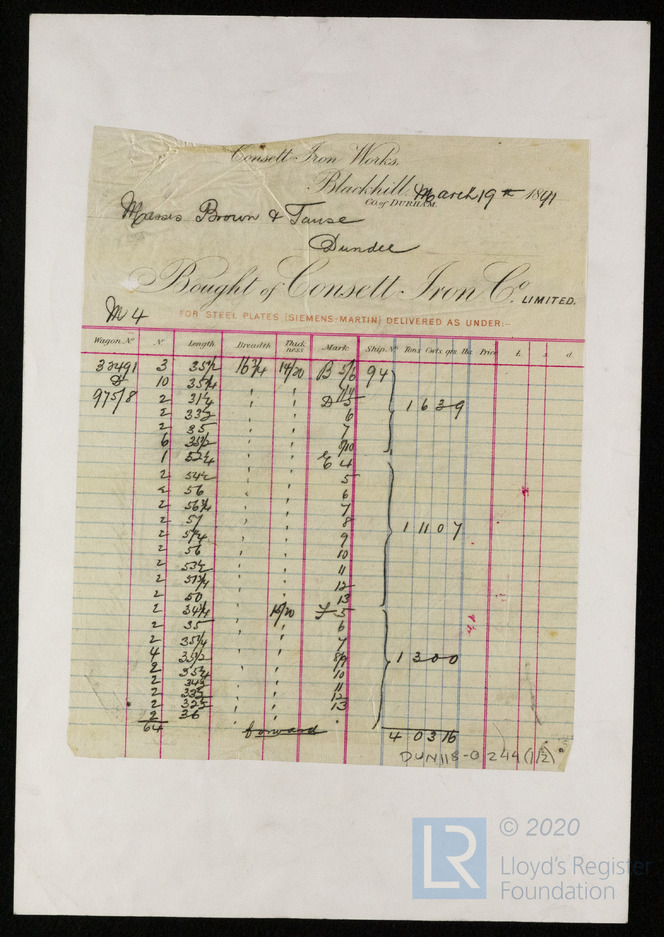 Consett Iron Works,
Blackhill, March 19th 1891
CO. of DURHAM.
Messrs Brown & Tawse
Dundee
Bought of Consett Iron Co. LIMITED.
M 4
FOR STEEL PLATES (SIEMENS-MARTIN) DELIVERED AS UNDER:-
Wagon No No Length Breadth Thickness Mark Ship No Tons Cwts qrs lbs Price £ s d.
33491 3 35½ 16¾ 14/20 B 5/6 94
10 35¼ " "
975/8 2 31¼ " " D 5 1 6 3 9
2 33½ " " 6
2 35 " " 7
6 35½ " "
1 52¼ " " E 4
2 54½ " " 5
2 56 " " 6
2 56¾ " " 7
2 57 " " 8 1 11 0 7
2 57¼ " " 9
2 56 " " 10
2 53½ " " 11
2 " " 12
2 50 " " 13
2 34¼ " F 5
2 35 " " 6
2 35¼ " " 7
4 35½ " " 8/9 1 3 0 0
2 35¼ " " 10
2 " " 11
2 " " 12
2 " " 13
2 36 " "
64 forward 4 0 3 16
DUN118-0244(1/2)
LR © 2020
Lloyd's Register
Foundation